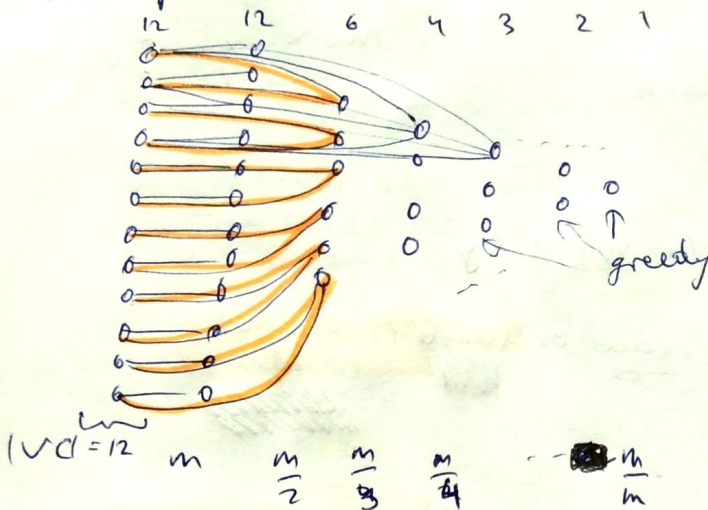 12 12 6 4 3 2 1
greedy
|V| = 12
m m/2 m/3 m/4 - - - m/m